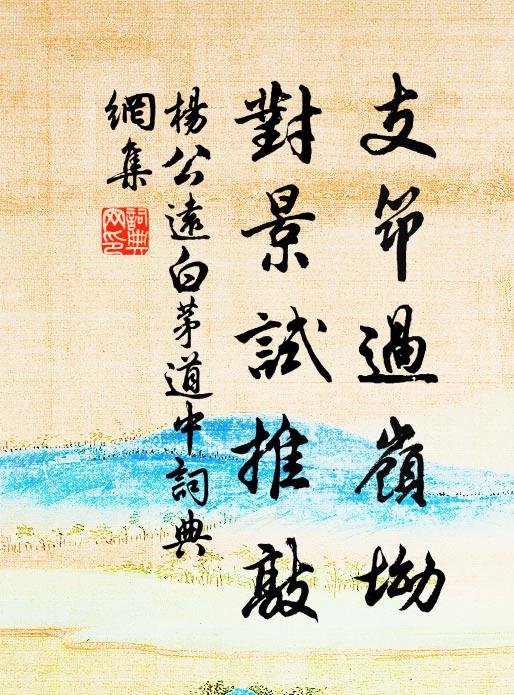 支笻過嶺坳
對景試推敲
楊公遠白茅道中詞典
網集
詞典
网印